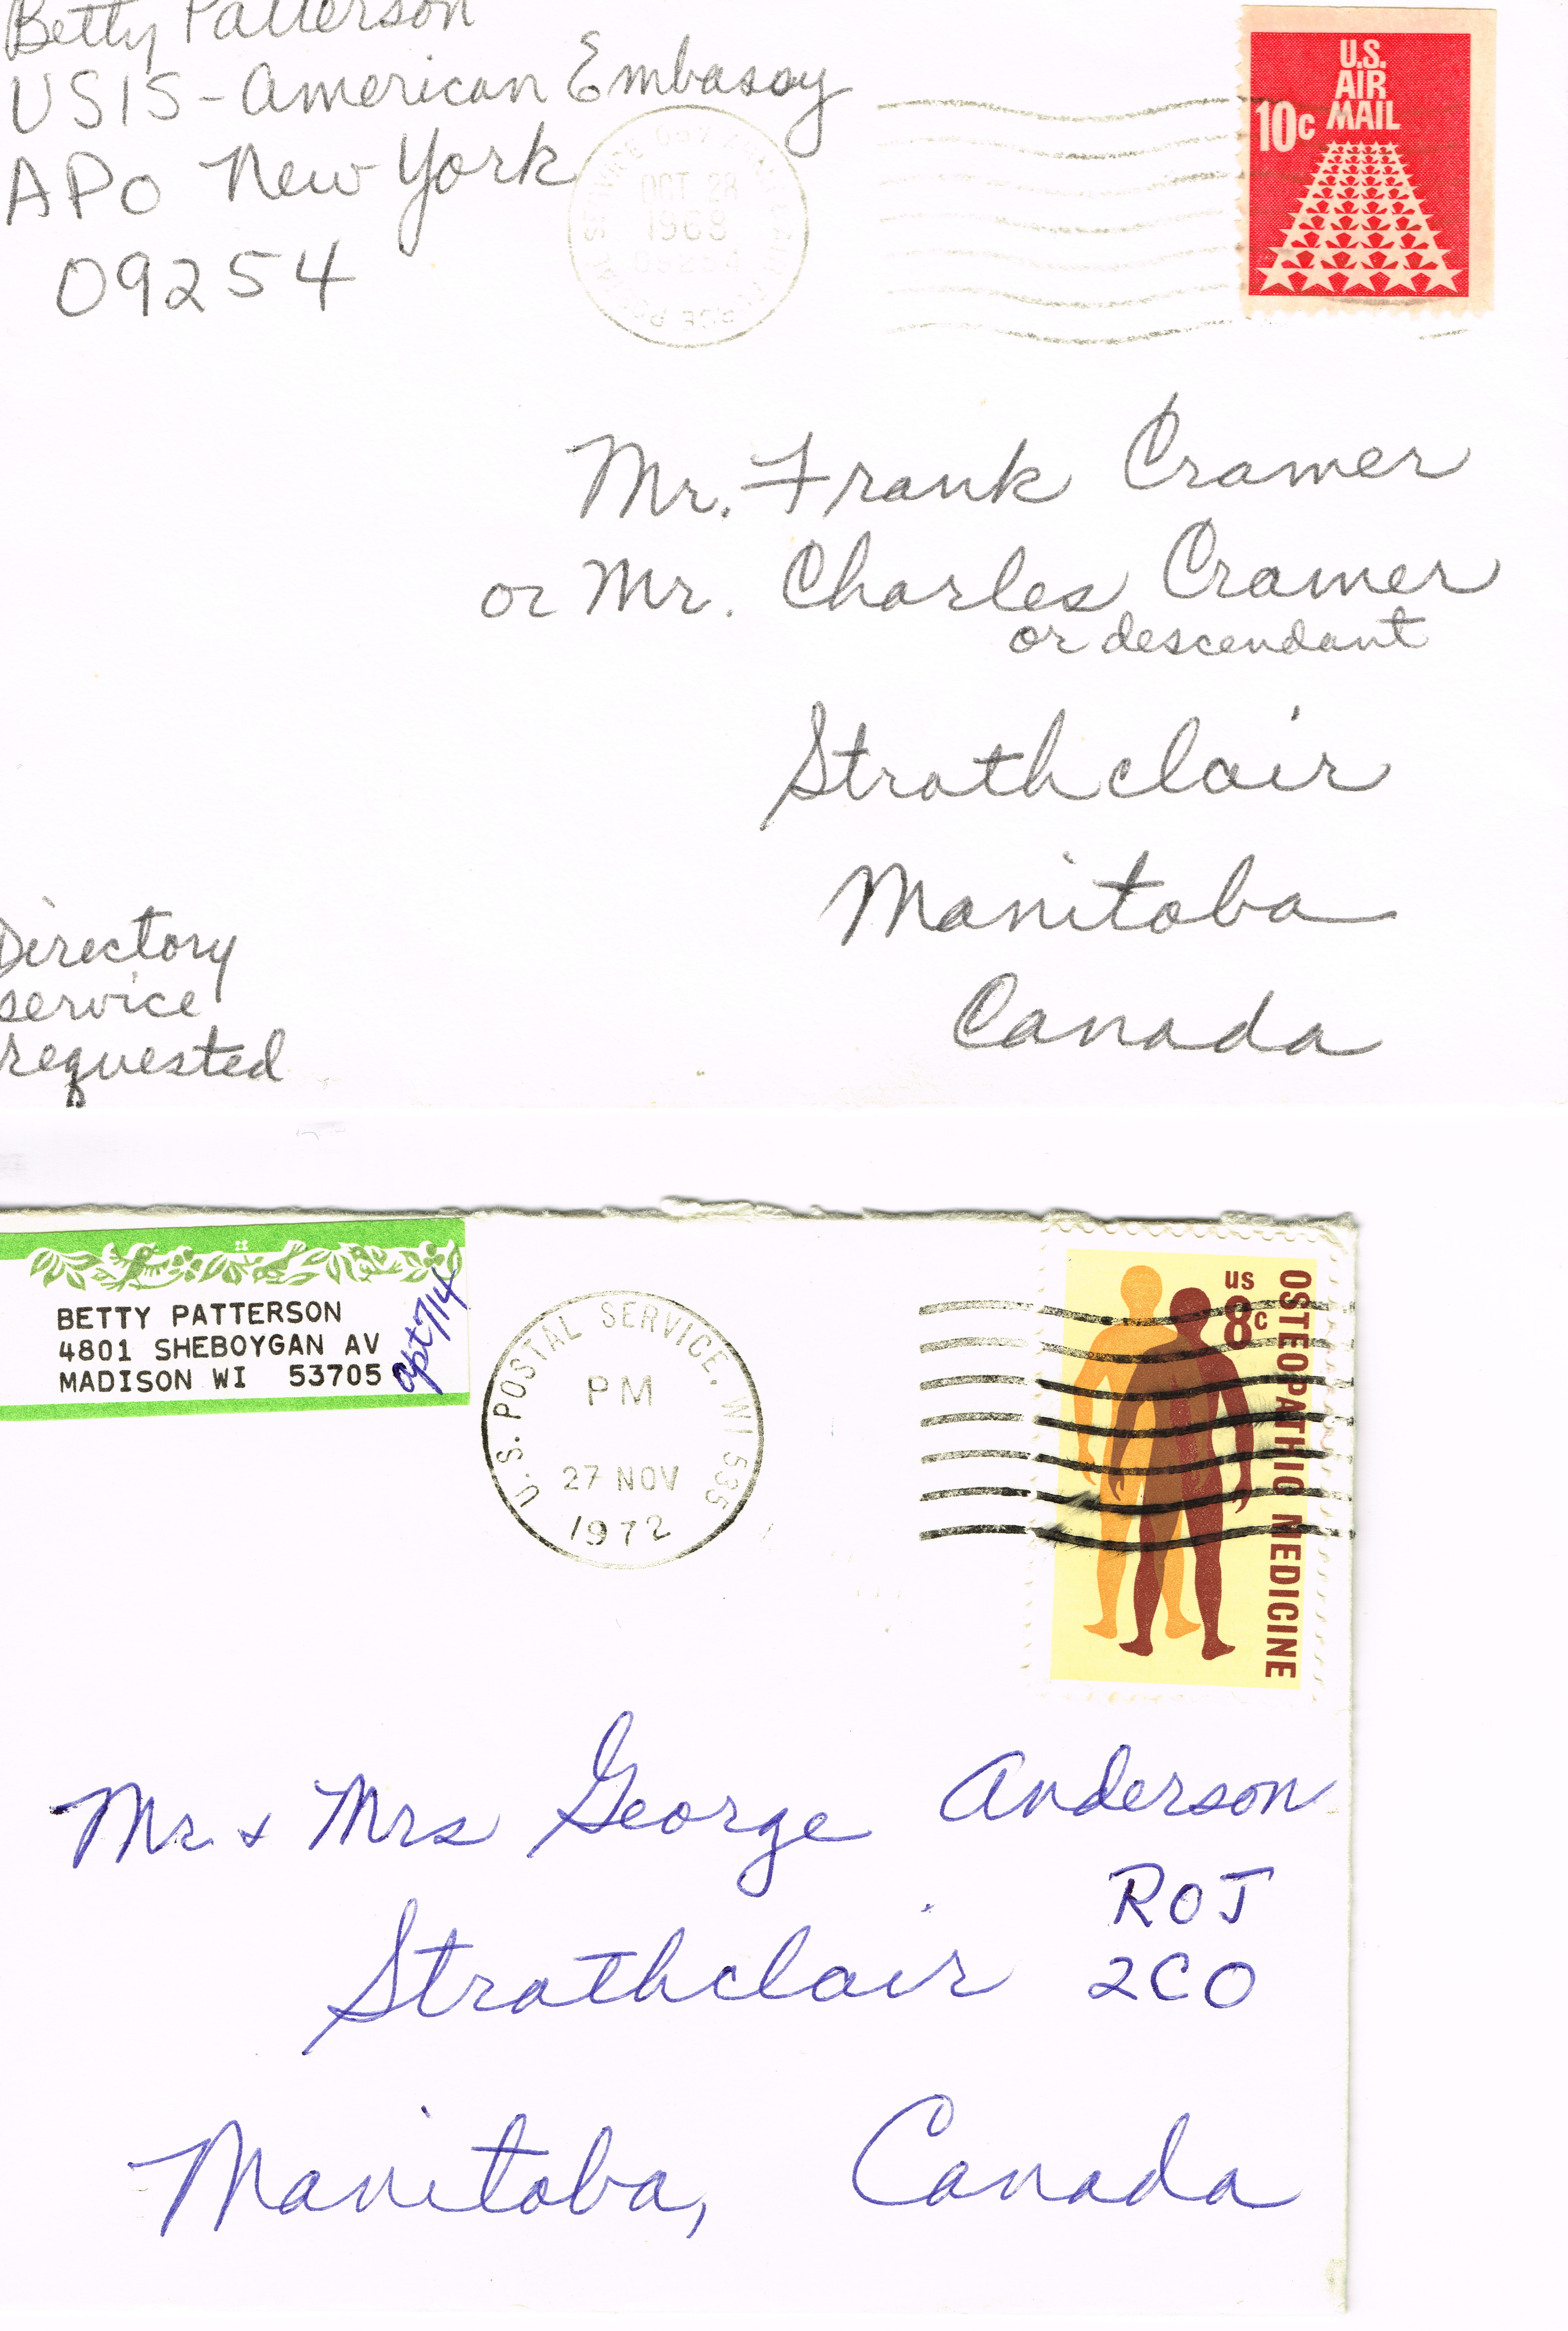 Betty Patterson
USIS - American Embassy
APO New York
09254
OCT 28
1968
U.S.
AIR
MAIL
10c
Mr. Frank Cramer
or Mr. Charles Cramer
or descendant
Strathclair
Manitoba
Canada
Directory
service
requested
BETTY PATTERSON
4801 SHEBOYGAN AV
MADISON WI 53705
apt 714
U.S. POSTAL SERVICE, WI 535
PM
27 NOV
1972
US
8c
OSTEOPATHIC MEDICINE
Mr & Mrs George Anderson
ROJ
Strathclair
2CO
Manitoba, Canada